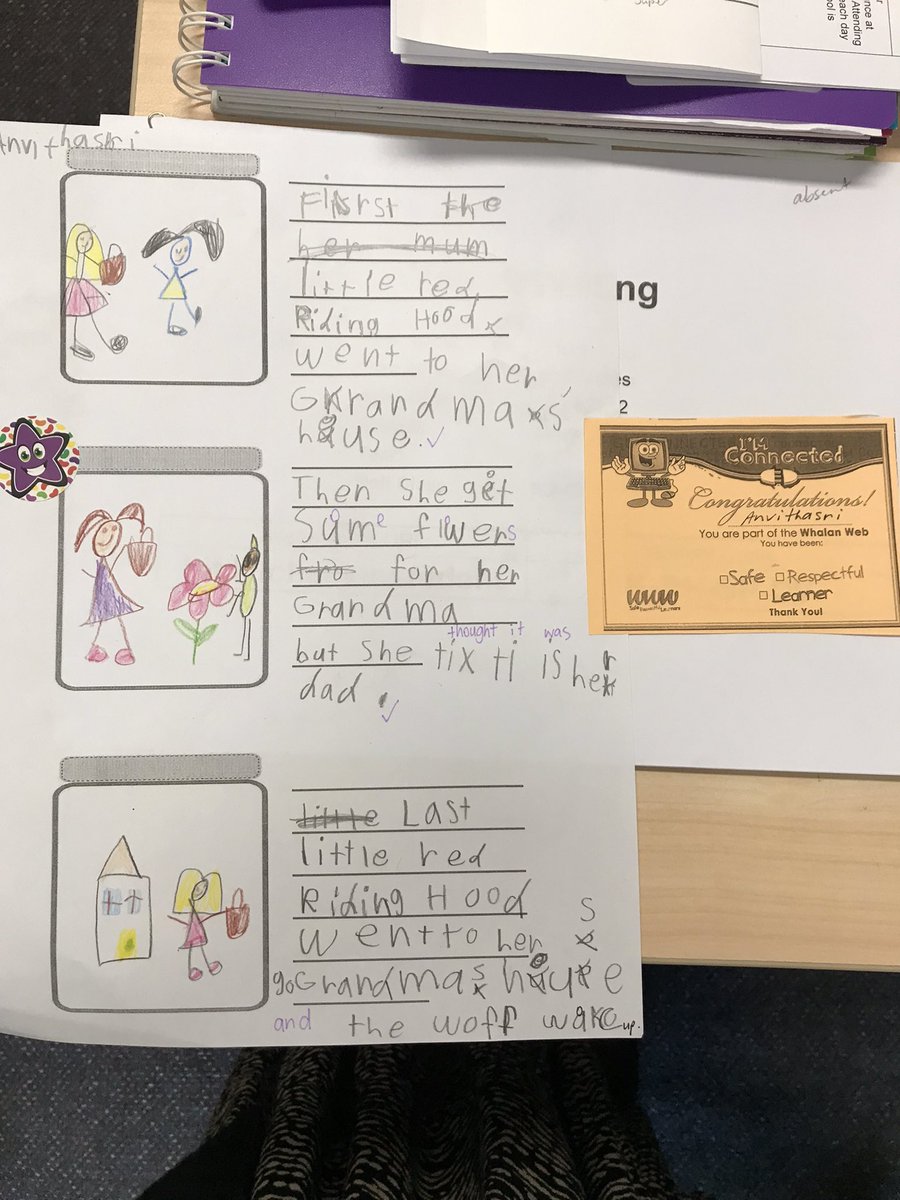 super
nce at
Attending
each day
ol is
Anvithasri
absent
First the
her mum
little red
Riding Hood
went to her
Grandma's
house.
ng
es
2
Then she get
Some flowers
fro for her
Grandma
thought it was
but she tix ti is her
dad.
I'M
Connected
Congratulations!
Anvithasri
You are part of the Whalan Web
You have been:
Safe Respectful
Learner
Thank You!
www
Safe Respectful Learners
little Last
little red
Riding Hood
went to her
go Grandmas house
and the woff wake up.